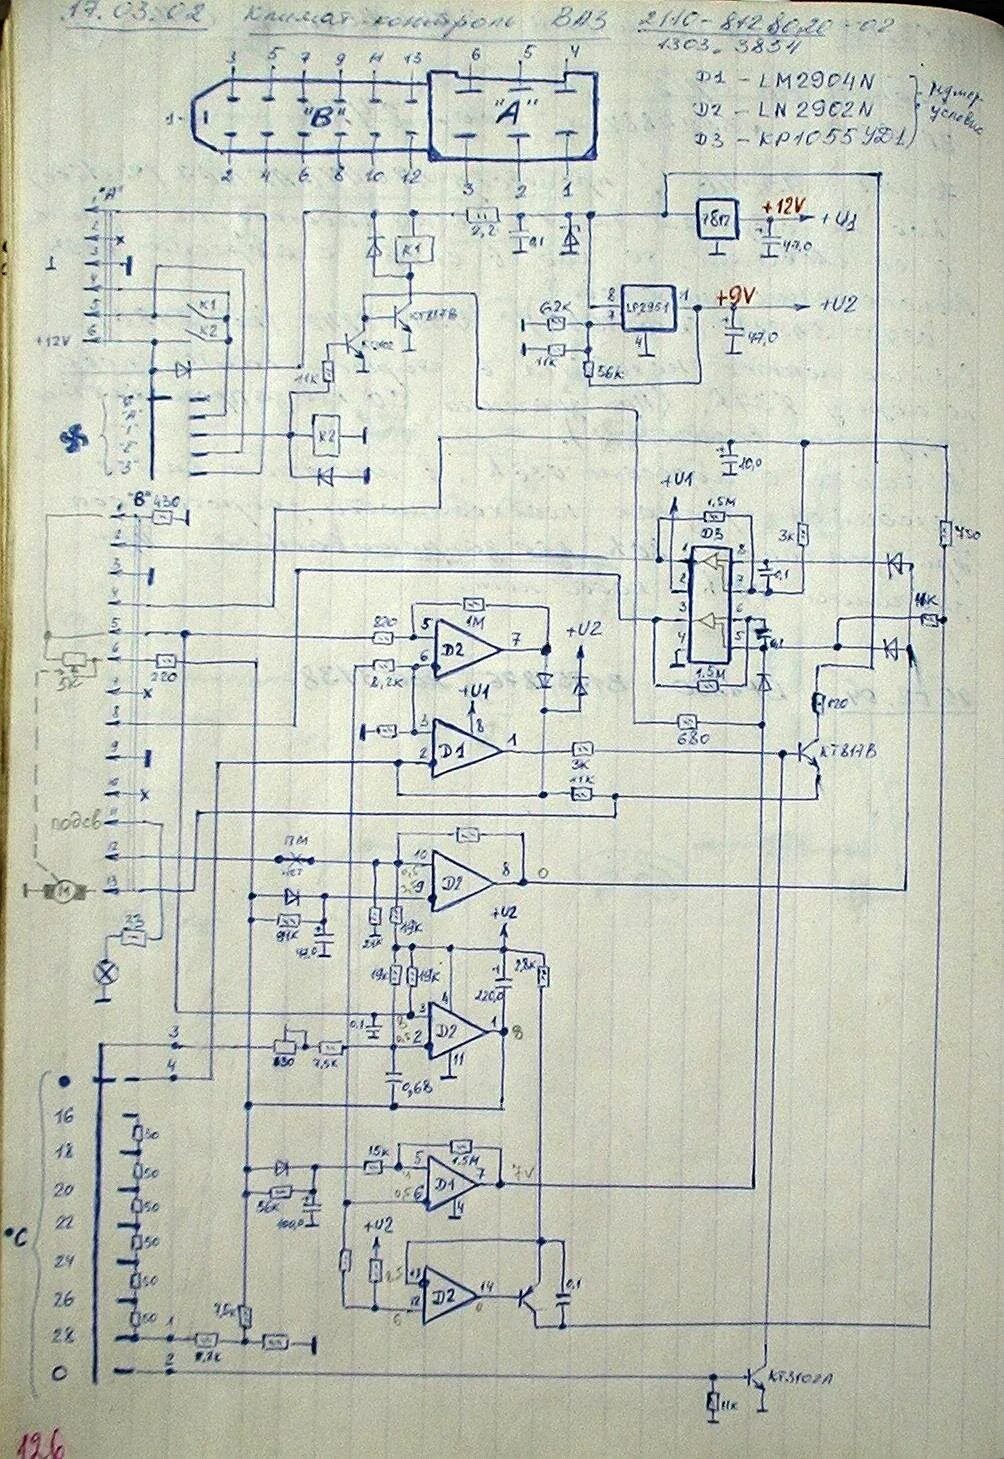 17.03.02 Климат-контроль ВАЗ 2110-8128020-02
1303.3854
D1 - LM2904N
D2 - LN2902N
D3 - КР1055УД1
3 5 7 9 11 13
6 5 4
1
"В"
"А"
2 4 6 8 10 12
3 2 1
"А"
K1
2,2
0,1
7812
+12V
+U1
47,0
K1
K2
+12V
КТ817В
62K
8
7
LP2951
1
4
+9V
+U2
47,0
11K
56K
11K
K2
"В"
430
10,0
+U1
1,5M
D3
3K
750
0,1
1 2 3 4
8 7 6 5
1,5M
680
120
КТ817В
3K
220
820
5
6
D2
7
1M
+U2
2,2K
+U1
3
2
D1
8
1
3K
11K
подсв
12
13
M
23
10
9
D2
8
0
91K
47,0
24K
19K
+U2
19K
19K
2,8K
220,0
0,1
3
2
D2
4
11
1
8
3
4
330
7,5K
0,68
°C
16
18
20
22
24
26
28
0
50
50
50
50
50
50
56K
100,0
15K
5
6
D1
4
7
1,5M
7V
+U2
13
12
D2
14
0
0,1
1
2
КТ3102А
11K
126